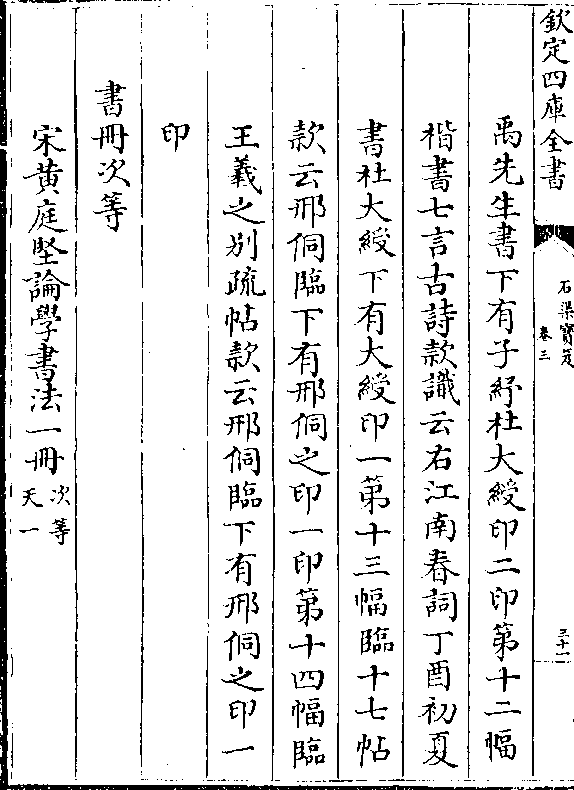 欽定四庫全書
石渠寶笈
卷三
三十一
禹先生書下有子紓杜大綬印二印第十二幅
楷書七言古詩款識云右江南春詞丁酉初夏
書杜大綬下有大綬印一第十三幅臨十七帖
款云邢侗臨下有邢侗之印一印第十四幅臨
王羲之別疏帖款云邢侗臨下有邢侗之印一
印
書冊次等
宋黄庭堅論學書法一冊
次等
天一